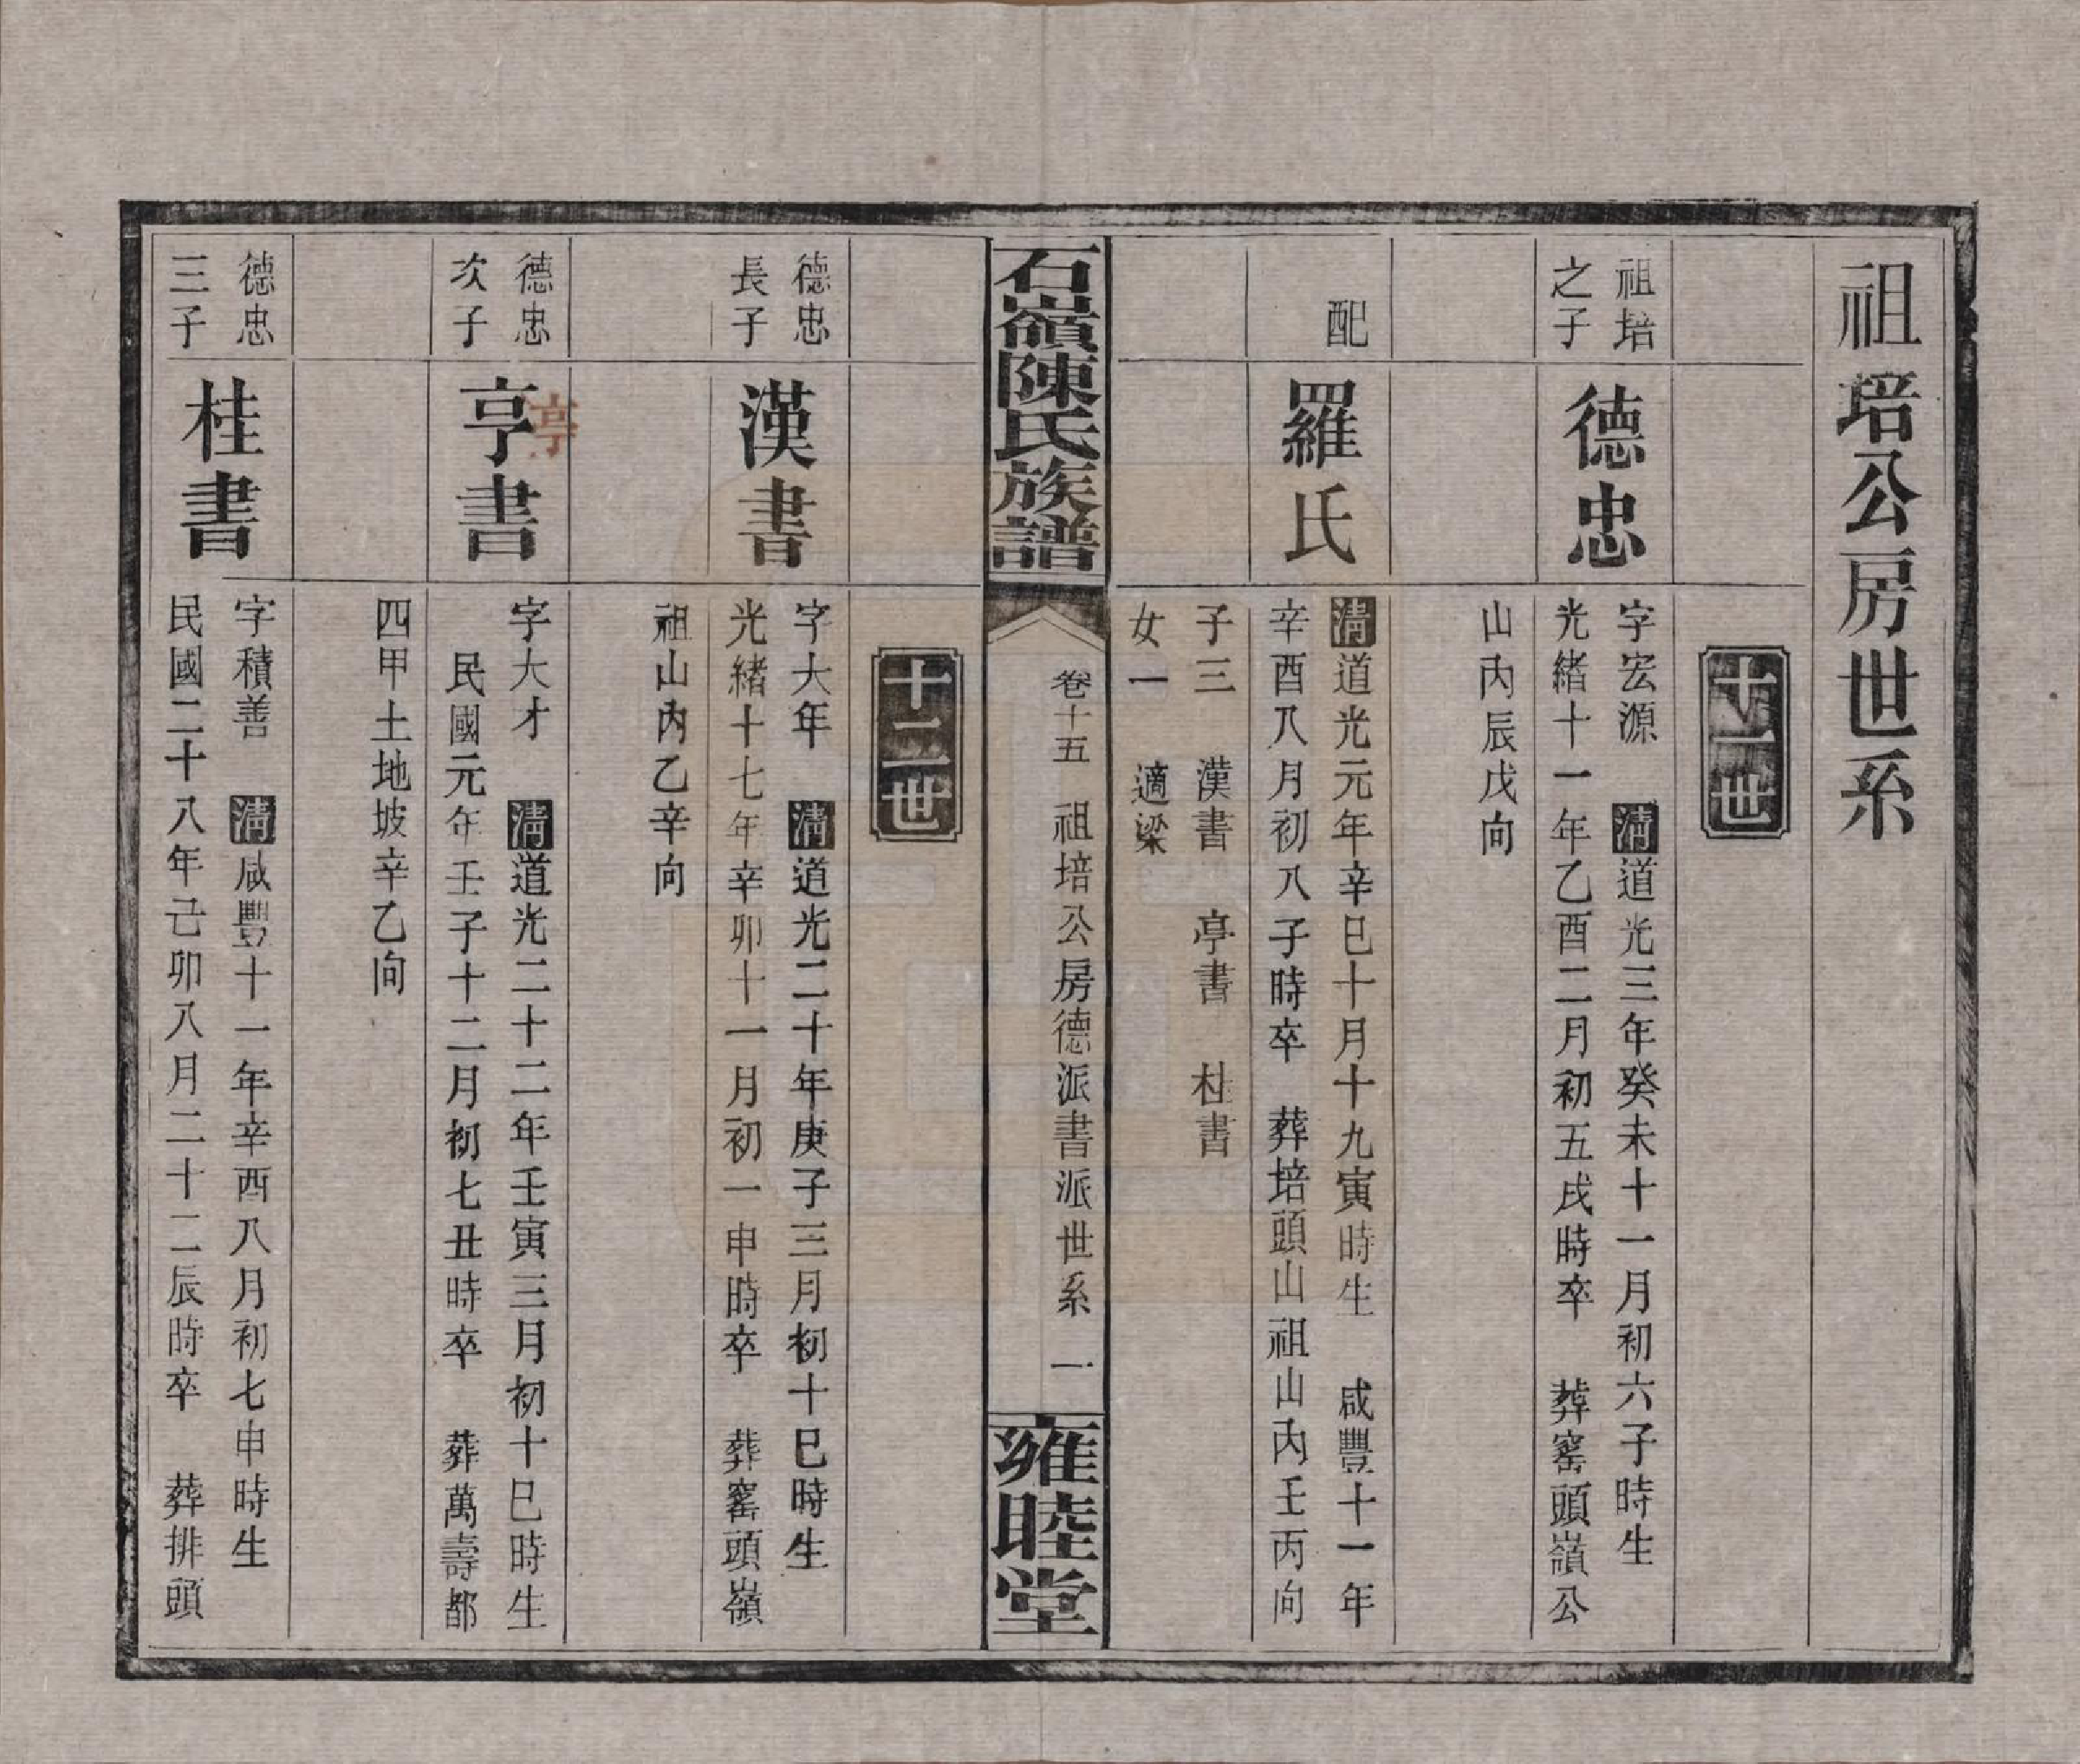 祖培公房世系
十一世
祖培
之子
德忠
字宏源　清道光三年癸未十一月初六子時生
光緒十一年乙酉二月初五戌時卒　葬窰頭嶺公
山內辰戌向
配
羅氏
清道光元年辛巳十月十九寅時生　咸豐十一年
辛酉八月初八子時卒　葬培頭山祖山內壬丙向
子三　漢書　亭書　桂書
女一　適梁
石嶺陳氏族譜
卷十五　祖培公房德派書派世系　一
雍睦堂
十二世
德忠
長子
漢書
字大年　清道光二十年庚子三月初十巳時生
光緒十七年辛卯十一月初一申時卒　葬窰頭嶺
祖山內乙辛向
德忠
次子
亨書
亭
字大才　清道光二十二年壬寅三月初十巳時生
民國元年壬子十二月初七丑時卒　葬萬壽都
四甲土地坡辛乙向
德忠
三子
桂書
字積善　清咸豐十一年辛酉八月初七申時生
民國二十八年己卯八月二十二辰時卒　葬排頭